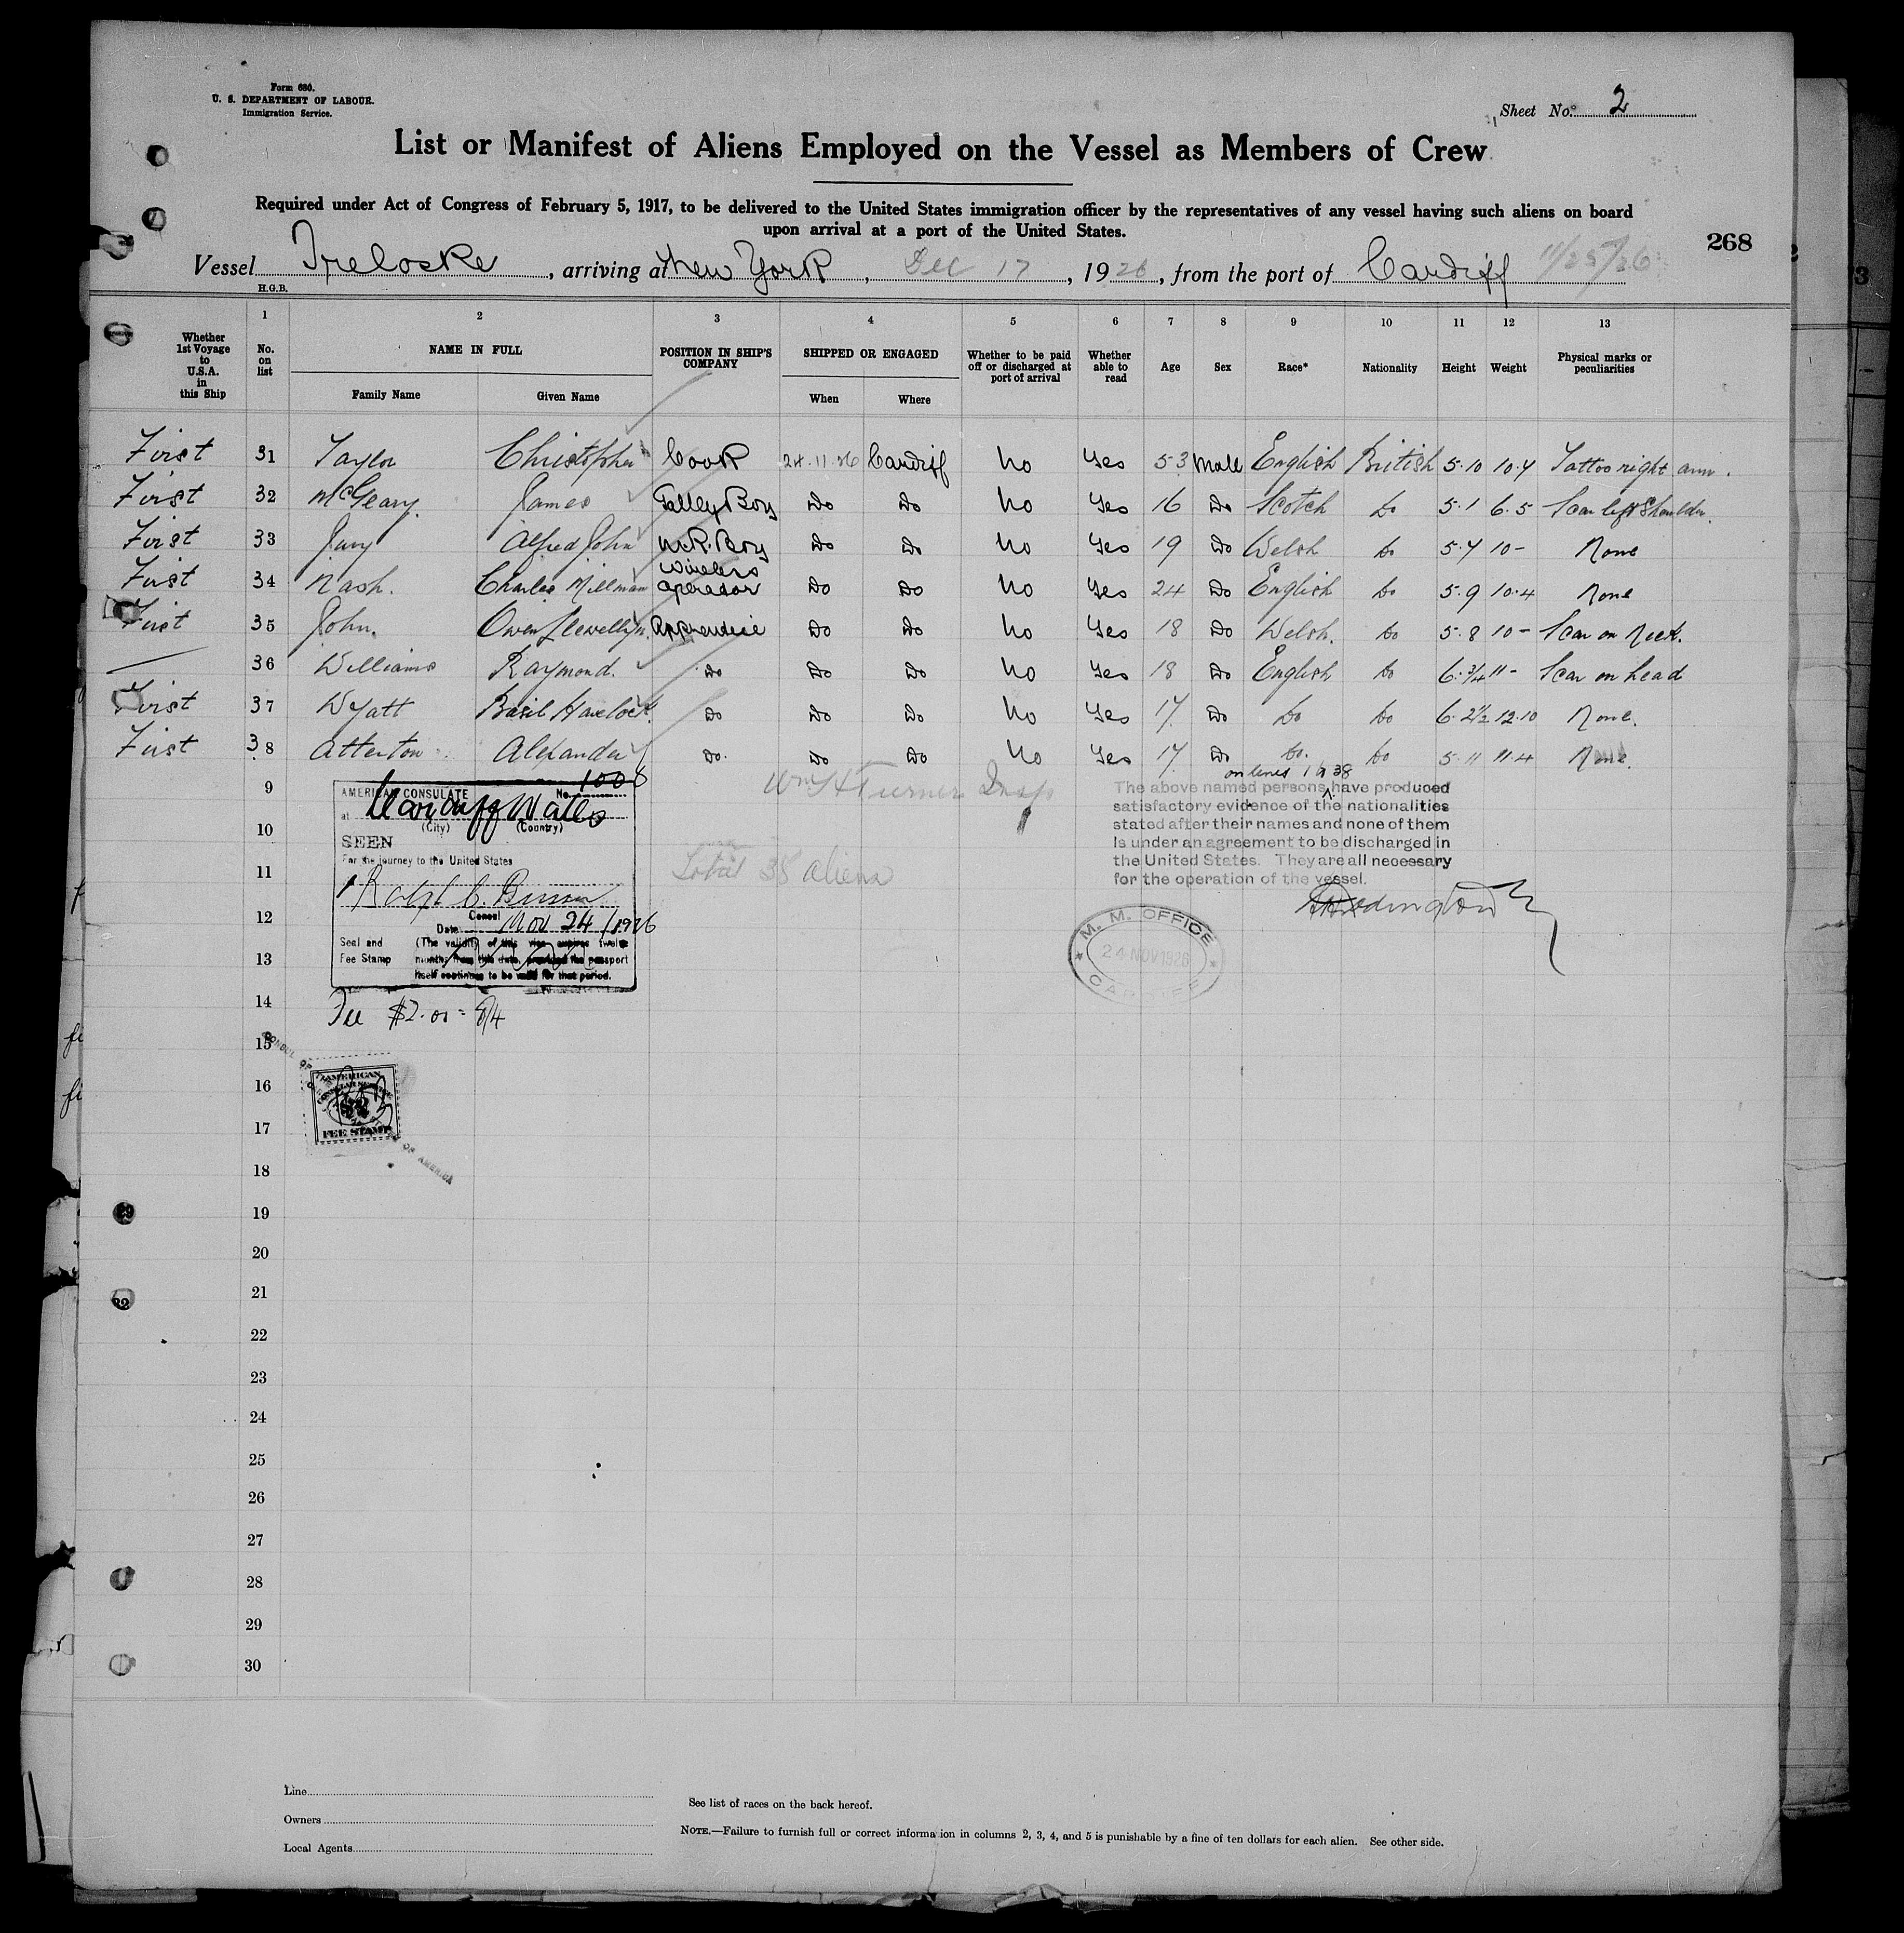 Form 680.
U. S. DEPARTMENT OF LABOUR.
Immigration Service.
Sheet No. 2
List or Manifest of Aliens Employed on the Vessel as Members of Crew
Required under Act of Congress of February 5, 1917, to be delivered to the United States immigration officer by the representatives of any vessel having such aliens on board
upon arrival at a port of the United States.
268
Vessel Treloske, arriving at New York, Dec 17, 1926, from the port of Cardiff 11/25/26
H.G.B.
1 2 3 4 5 6 7 8 9 10 11 12 13
Whether 1st Voyage to U.S.A. in this Ship No. on list NAME IN FULL POSITION IN SHIP'S COMPANY SHIPPED OR ENGAGED Whether to be paid off or discharged at port of arrival Whether able to read Age Sex Race* Nationality Height Weight Physical marks or peculiarities
Family Name Given Name When Where
First 31 Taylor Christopher Cook 24.11.26 Cardiff No Yes 53 Male English British 5.10 10.7 Tattoo right arm.
First 32 McGeary. James Galley Boy Do Do No Yes 16 Do Scotch Do 5.1 6.5 Scar left Shoulder.
First 33 Jury Alfred John M.R. Boy Do Do No Yes 19 Do Welsh Do 5.7 10- None
First 34 Nash. Charles Millman Wireless Operator Do Do No Yes 24 Do English Do 5.9 10.4 None
First 35 John. Owen Llewellyn. Apprentice Do Do No Yes 18 Do Welsh. Do 5.8 10- Scar on Neck.
— 36 Williams Raymond. Do Do Do No Yes 18 Do English Do 6.3/4 11- Scar on head
First 37 Wyatt Basil Havelock. Do Do Do No Yes 17 Do Do Do 6.2½ 12.10 None.
First 38 Atterton Alexander Do. Do Do No Yes 17 Do Do. Do 5.11 11.4 None.
9
10
11
12
13
14
15
16
17
18
19
20
21
22
23
24
25
26
27
28
29
30
AMERICAN CONSULATE No. 1008
at Cardiff Wales
(City) (Country)
SEEN
For the journey to the United States
Consul
Date Nov 24/1926
Seal and Fee Stamp
(The validity of this visa expires twelve
months from this date, provided the passport
itself continues to be valid for that period.
Fee $2.00 = 8/4
AMERICAN
CONSULAR SERVICE
$2
FEE STAMP
CONSUL OF
OF AMERICA
Wm H Turner Insp
Total 38 aliens
on lines 1 to 38
The above named persons have produced
satisfactory evidence of the nationalities
stated after their names and none of them
is under an agreement to be discharged in
the United States. They are all necessary
for the operation of the vessel.
M. M. OFFICE
24 NOV 1926
CARDIFF
Line
Owners
Local Agents
See list of races on the back hereof.
NOTE.—Failure to furnish full or correct information in columns 2, 3, 4, and 5 is punishable by a fine of ten dollars for each alien. See other side.